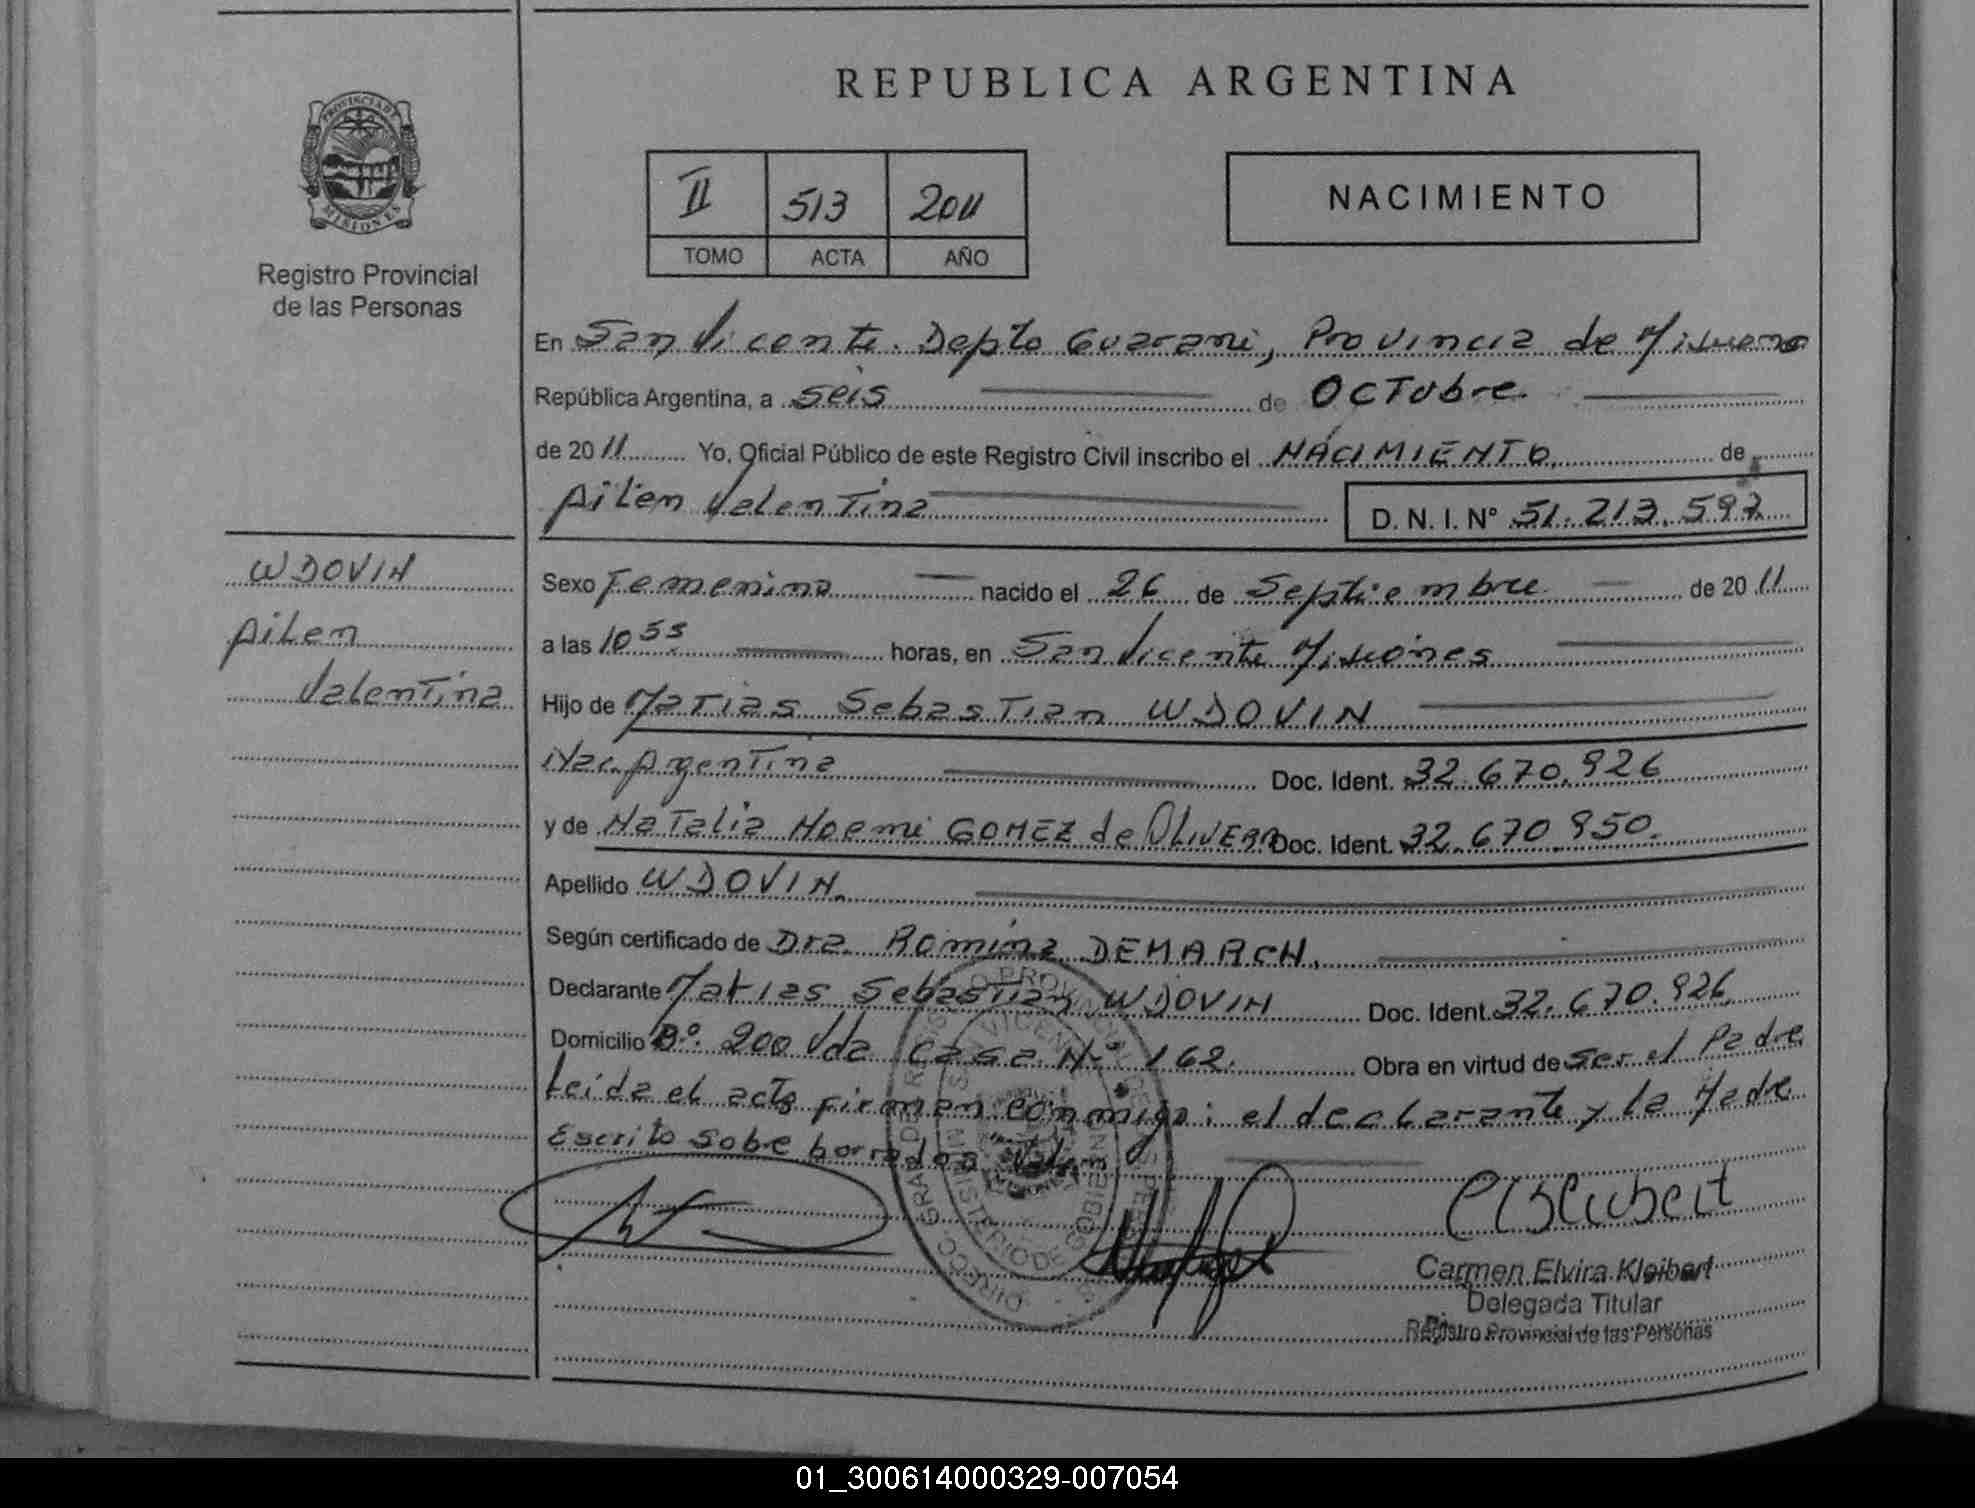 REPUBLICA ARGENTINA
PROVINCIA DE
MISIONES
Registro Provincial
de las Personas
II 513 2011
TOMO ACTA AÑO
NACIMIENTO
En San Vicente. Depto Guarani, Provincia de Misiones
República Argentina, a seis de Octubre
de 2011 Yo, Oficial Público de este Registro Civil inscribo el NACIMIENTO de
Ailen Valentina D. N. I. N° 51.213.597
WDOVIN
Ailen
Valentina
Sexo Femenino nacido el 26 de Septiembre de 2011
a las 10 55 horas, en San Vicente Misiones
Hijo de Matias Sebastian WDOVIN
Nac. Argentina Doc. Ident. 32.670.926
y de Natalia Noemi GOMEZ de OLIVERA Doc. Ident. 32.670.950.
Apellido WDOVIN.
Según certificado de Dra. Romina DEMARCH.
Declarante Matias Sebastian WDOVIN Doc. Ident. 32.670.926
Domicilio B°. 200 Vda Casa N° 162. Obra en virtud de ser el Padre
Leida el acta firman conmigo: el declarante y la Madre
Escrito sobre borrado
Carmen Elvira Kleibert
Delegada Titular
Registro Provincial de las Personas
01_300614000329-007054